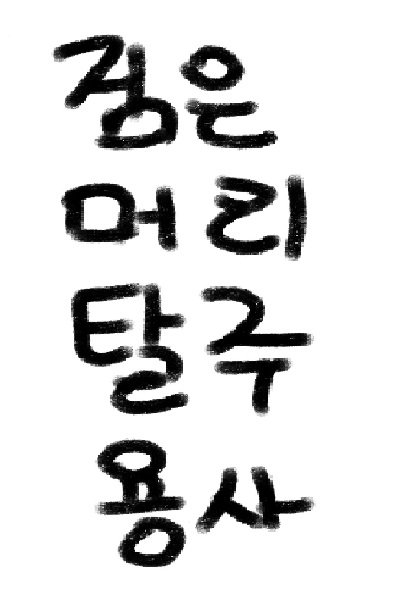 검은
머리
탈주
용사